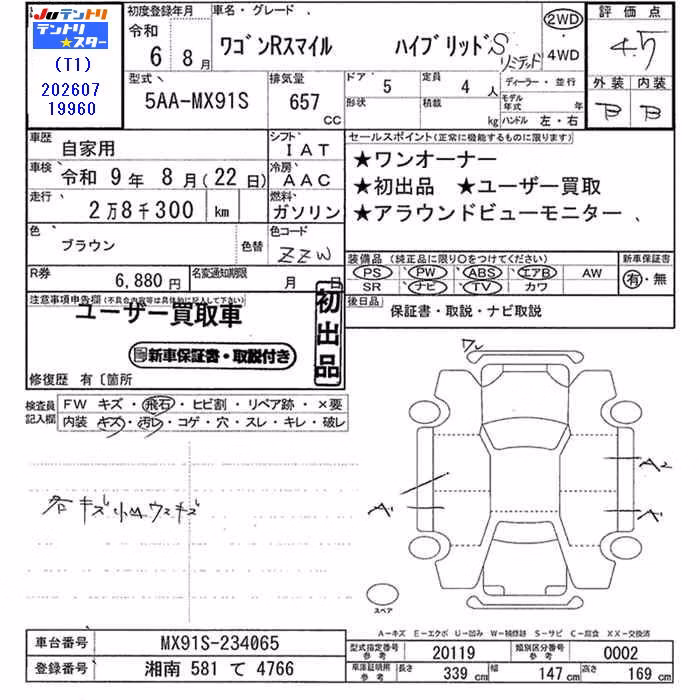 JU テントリ
テントリ
★スター
(T1)
202607
19960
初度登録年月
令和
6 8月
車名・グレード
ワゴンRスマイル ハイブリッドS
リミテッド
2WD
・
4WD
評価点
4.5
外装 内装
B B
型式
5AA-MX91S
排気量
657
CC
ドア
5
形状
定員
4 人
積載
kg
ディーラー・並行
モデル年式 年
ハンドル 左・右
車歴 自家用
シフト
IAT
車検 令和 9年 8月(22日)
冷房
AAC
走行 2万8千300 km
燃料
ガソリン
色 ブラウン 色替
色コード
ZZW
R券 6,880円
名変通知期限 月 日
セールスポイント(正常に機能するものに限ります)
★ワンオーナー
★初出品 ★ユーザー買取
★アラウンドビューモニター
装備品 (純正品に限り○をつけてください)
PS ・ PW ・ ABS ・ エアB ・ AW
SR ・ ナビ ・ TV ・ カワ
新車保証書
有・無
後日品
保証書・取説・ナビ取説
注意事項申告欄(不具合内容等は具体的に記入して下さい)
ユーザー買取車
新車保証書・取説付き
初出品
修復歴 有〔箇所
検査員
記入欄
FW キズ・飛石・ヒビ割・リペア跡・×要
内装 キズ・汚レ・コゲ・穴・スレ・キレ・破レ
各キズ小凹ウスキズ
ワレ
A2
A1
A1
スペア
A−キズ E−エクボ U−凹み W−補修跡 S−サビ C−腐食 XX−交換済
車台番号 MX91S-234065
登録番号 湘南 581 て 4766
型式指定番号
参考
20119
類別区分番号
参考
0002
車庫証明用
参考
長さ 339 cm 幅 147 cm 高さ 169 cm